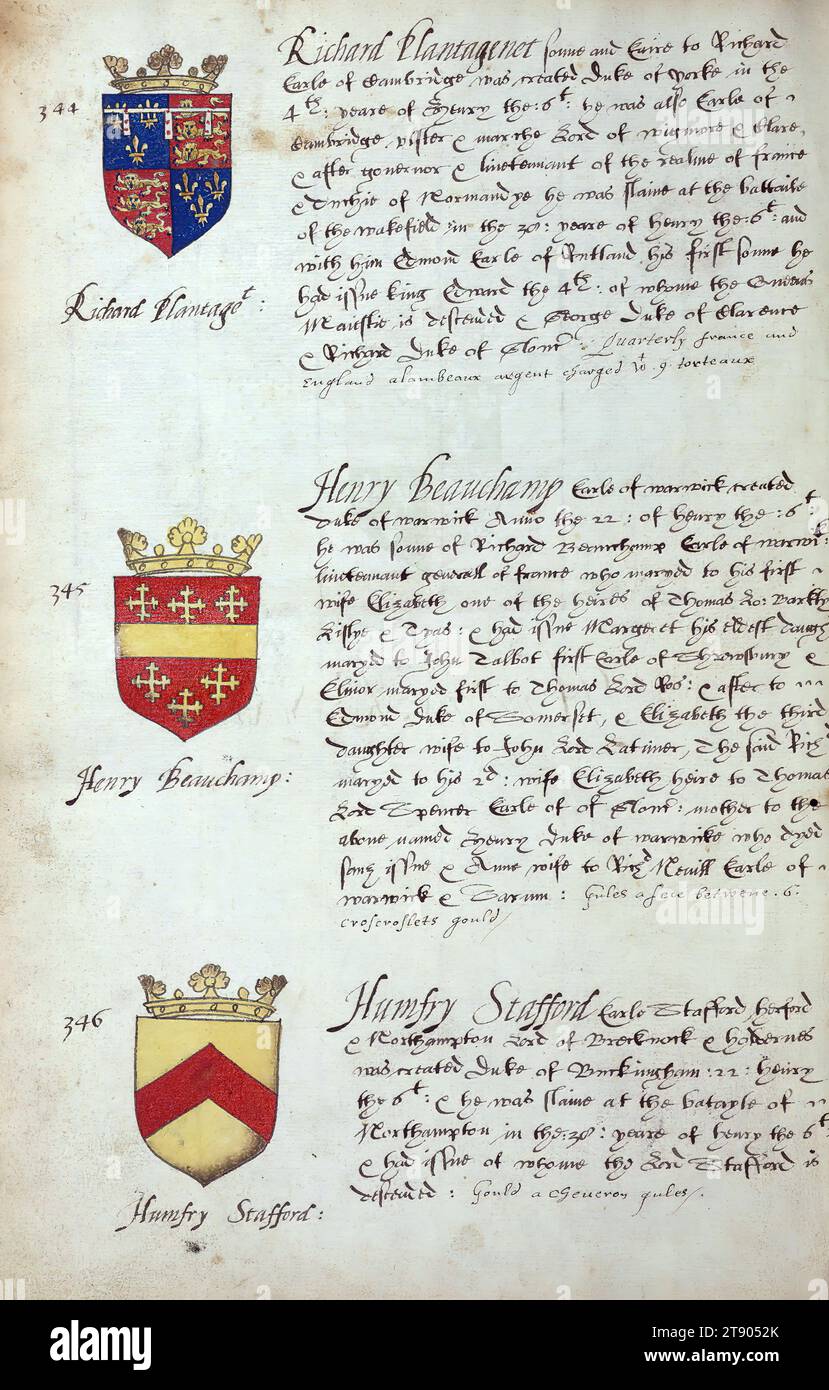 344
Richard Plantagenet sonne and heire to Richard
Earle of Cambridge was created Duke of Yorke in the
4th: yeare of Henry the: 6t: he was also Earle of
Cambridge, vlster & marche Lord of wigmore & Clare,
& after governor & liuetennant of the realme of france
& Duchie of Normandye he was slaine at the battaile
of the wakefield in the 38: yeare of henry the: 6t: and
with him Edmond Earle of Rutland his first sonne he
had issue king Edward the 4th: of whome the Queens
Maiestie is descended & George Duke of Clarence
& Richard Duke of Glouc: Quarterly france and
England a lambeaux argent charged wt. 9. torteaux
Richard Plantagt:
345
Henry Beauchamp Earle of warwick created
Duke of warwick Anno the 22: of henry the: 6t
he was sonne of Richard Beauchamp Earle of warwi:
liuetennant generall of france who maryed to his first
wife Elizabeth one of the heires of Thomas Lo: Barkly
Lislye & Tyas: & had issue Margeret his eldest daugh
maryed to John Talbot first Earle of Shrewsbury &
Elinor maryed first to Thomas Lord Ros: & after to
Edmond Duke of Somerset, & Elizabeth the third
daughter wife to John Lord Latimer, The said Rich
maryed to his 2d: wife Elizabeth heire to Thomas
Lord Spencer Earle of of Glouc: mother to the
aboue named Henry Duke of warwicke who dyed
sanz issue & Anne wife to Rich Nevill Earle of
warwick & Sarum: Gules a fece betwene .6.
croscroslets gould
Henry Beauchamp:
346
Humfry Stafford Earle Stafford, herford
& Northampton Lord of Brecknock & holdernes
was created Duke of Buckingham: 22: henry
the 6t: & he was slaine at the batayle of
Northampton in the: 38: yeare of henry the 6t
& had issue of whome the Lord Stafford is
descended: Gould a cheueron gules.
Humfry Stafford:
alamy
Image ID: 2T9052K
www.alamy.com